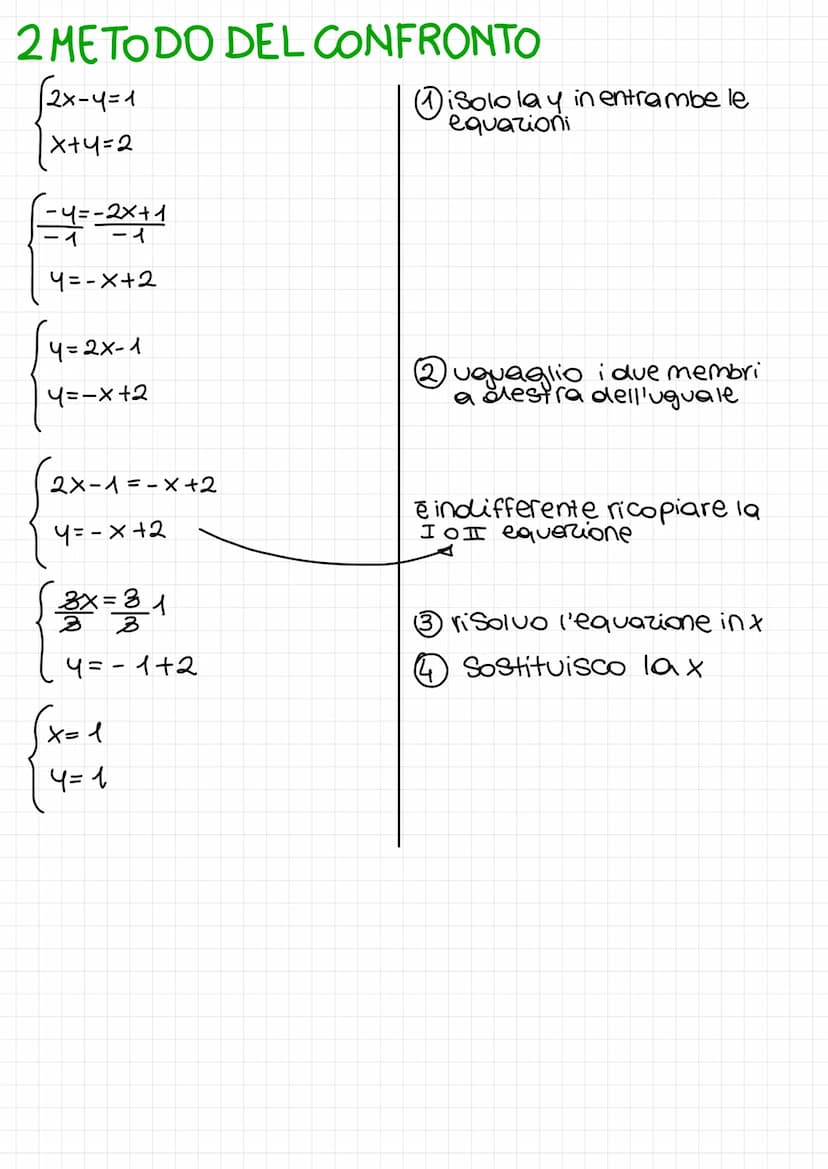 2 METODO DEL CONFRONTO
2x-y=1
x+y=2
① isolo la y in entrambe le
equazioni
-y = -2x+1
-1 -1
y=-x+2
y=2x-1
y=-x+2
② uguaglio i due membri
a destra dell'uguale
2x-1=-x+2
y=-x+2
è indifferente ricopiare la
I o II equazione
3x = 3 1
3 3
y=-1+2
③ risolvo l'equazione in x
④ sostituisco la x
x=1
y=1